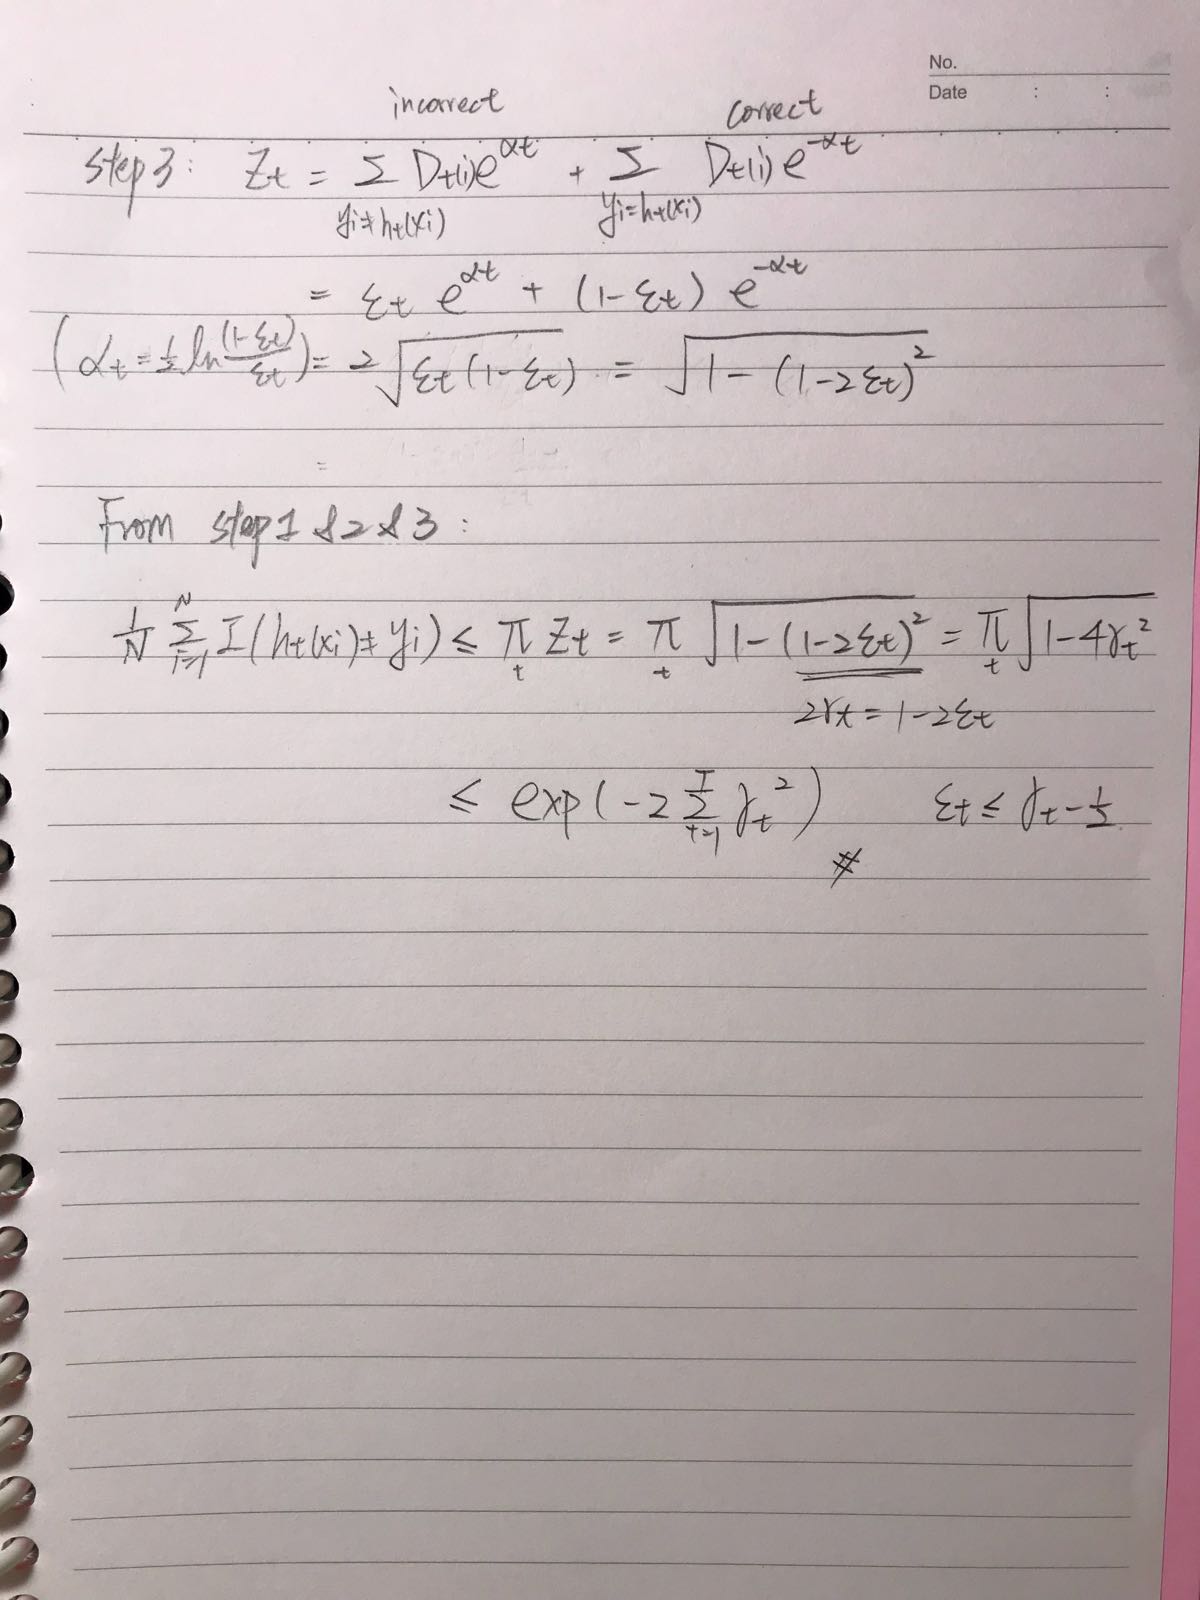 No.
Date : :
incorrect correct
step 3: Zt = Σ Dt(i)e^αt + Σ Dt(i)e^-αt
yi≠ht(xi) yi=ht(xi)
= εt e^αt + (1-εt) e^-αt
(αt = ½ ln (1-εt)/εt) = 2√(εt(1-εt)) = √(1-(1-2εt)²)
=
From step1 & 2 & 3 :
1/N Σ_{i=1}^N I(ht(xi)≠yi) ≤ π_t Zt = π_t √(1-(1-2εt)²) = π_t √(1-4γt²)
2γt = 1-2εt
≤ exp(-2 Σ_{t=1}^T γt²) εt ≤ γt - ½
#